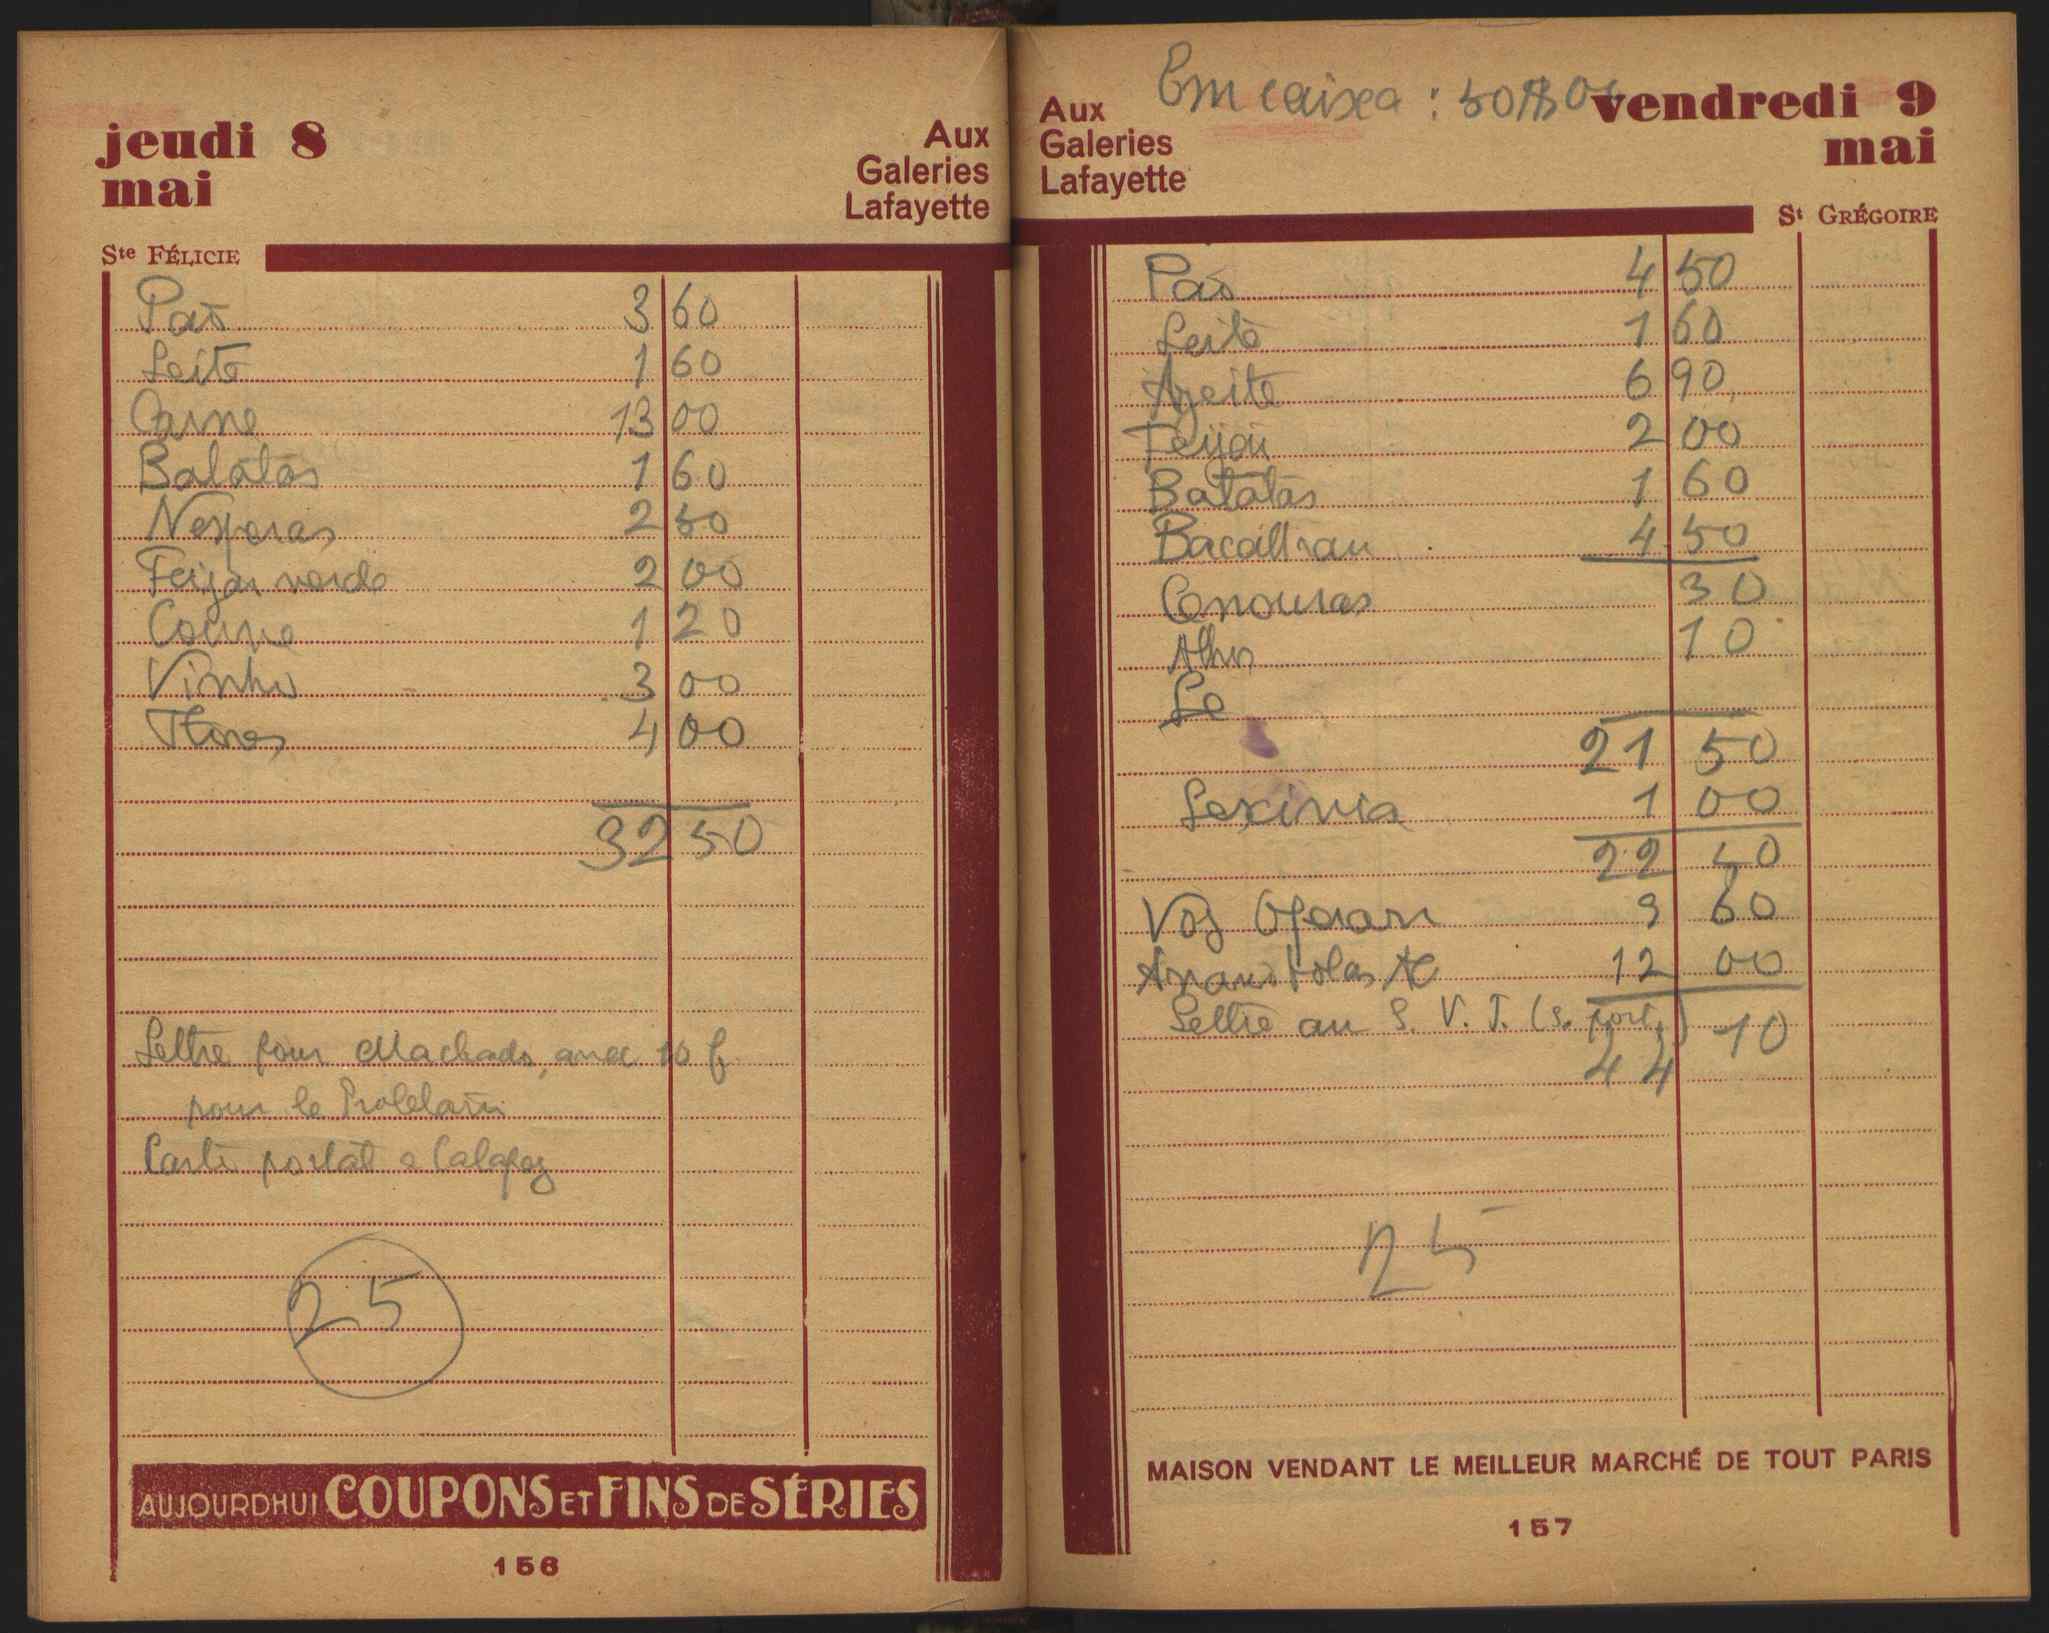 jeudi 8
mai
Aux
Galeries
Lafayette
Ste FÉLICIE
Pão 3 60
Leite 1 60
Carne 13 00
Batatas 1 60
Nesperas 2 50
Feijão verde 2 00
Couve 1 20
Vinho 3 00
Flores 4 00
32 50
Lettre pour Machado, avec 10 f
pour le Prolétaire
Carte postal a Calapez
25
AUJOURDHUI COUPONS ET FINS DE SÉRIES
156
Em caixa : 50$0
Aux
Galeries
Lafayette
vendredi 9
mai
St GRÉGOIRE
Pão 4 50
Leite 1 60
Azeite 6 90
Feijão 2 00
Batatas 1 60
Bacalhau 4 50
Cenouras 30
Alhos 10
Le
21 50
Lexivia 1 00
22 40
Voz Operari 9 60
12 00
Lettre au S. V. I. (s. port.)
44 10
25
MAISON VENDANT LE MEILLEUR MARCHÉ DE TOUT PARIS
157